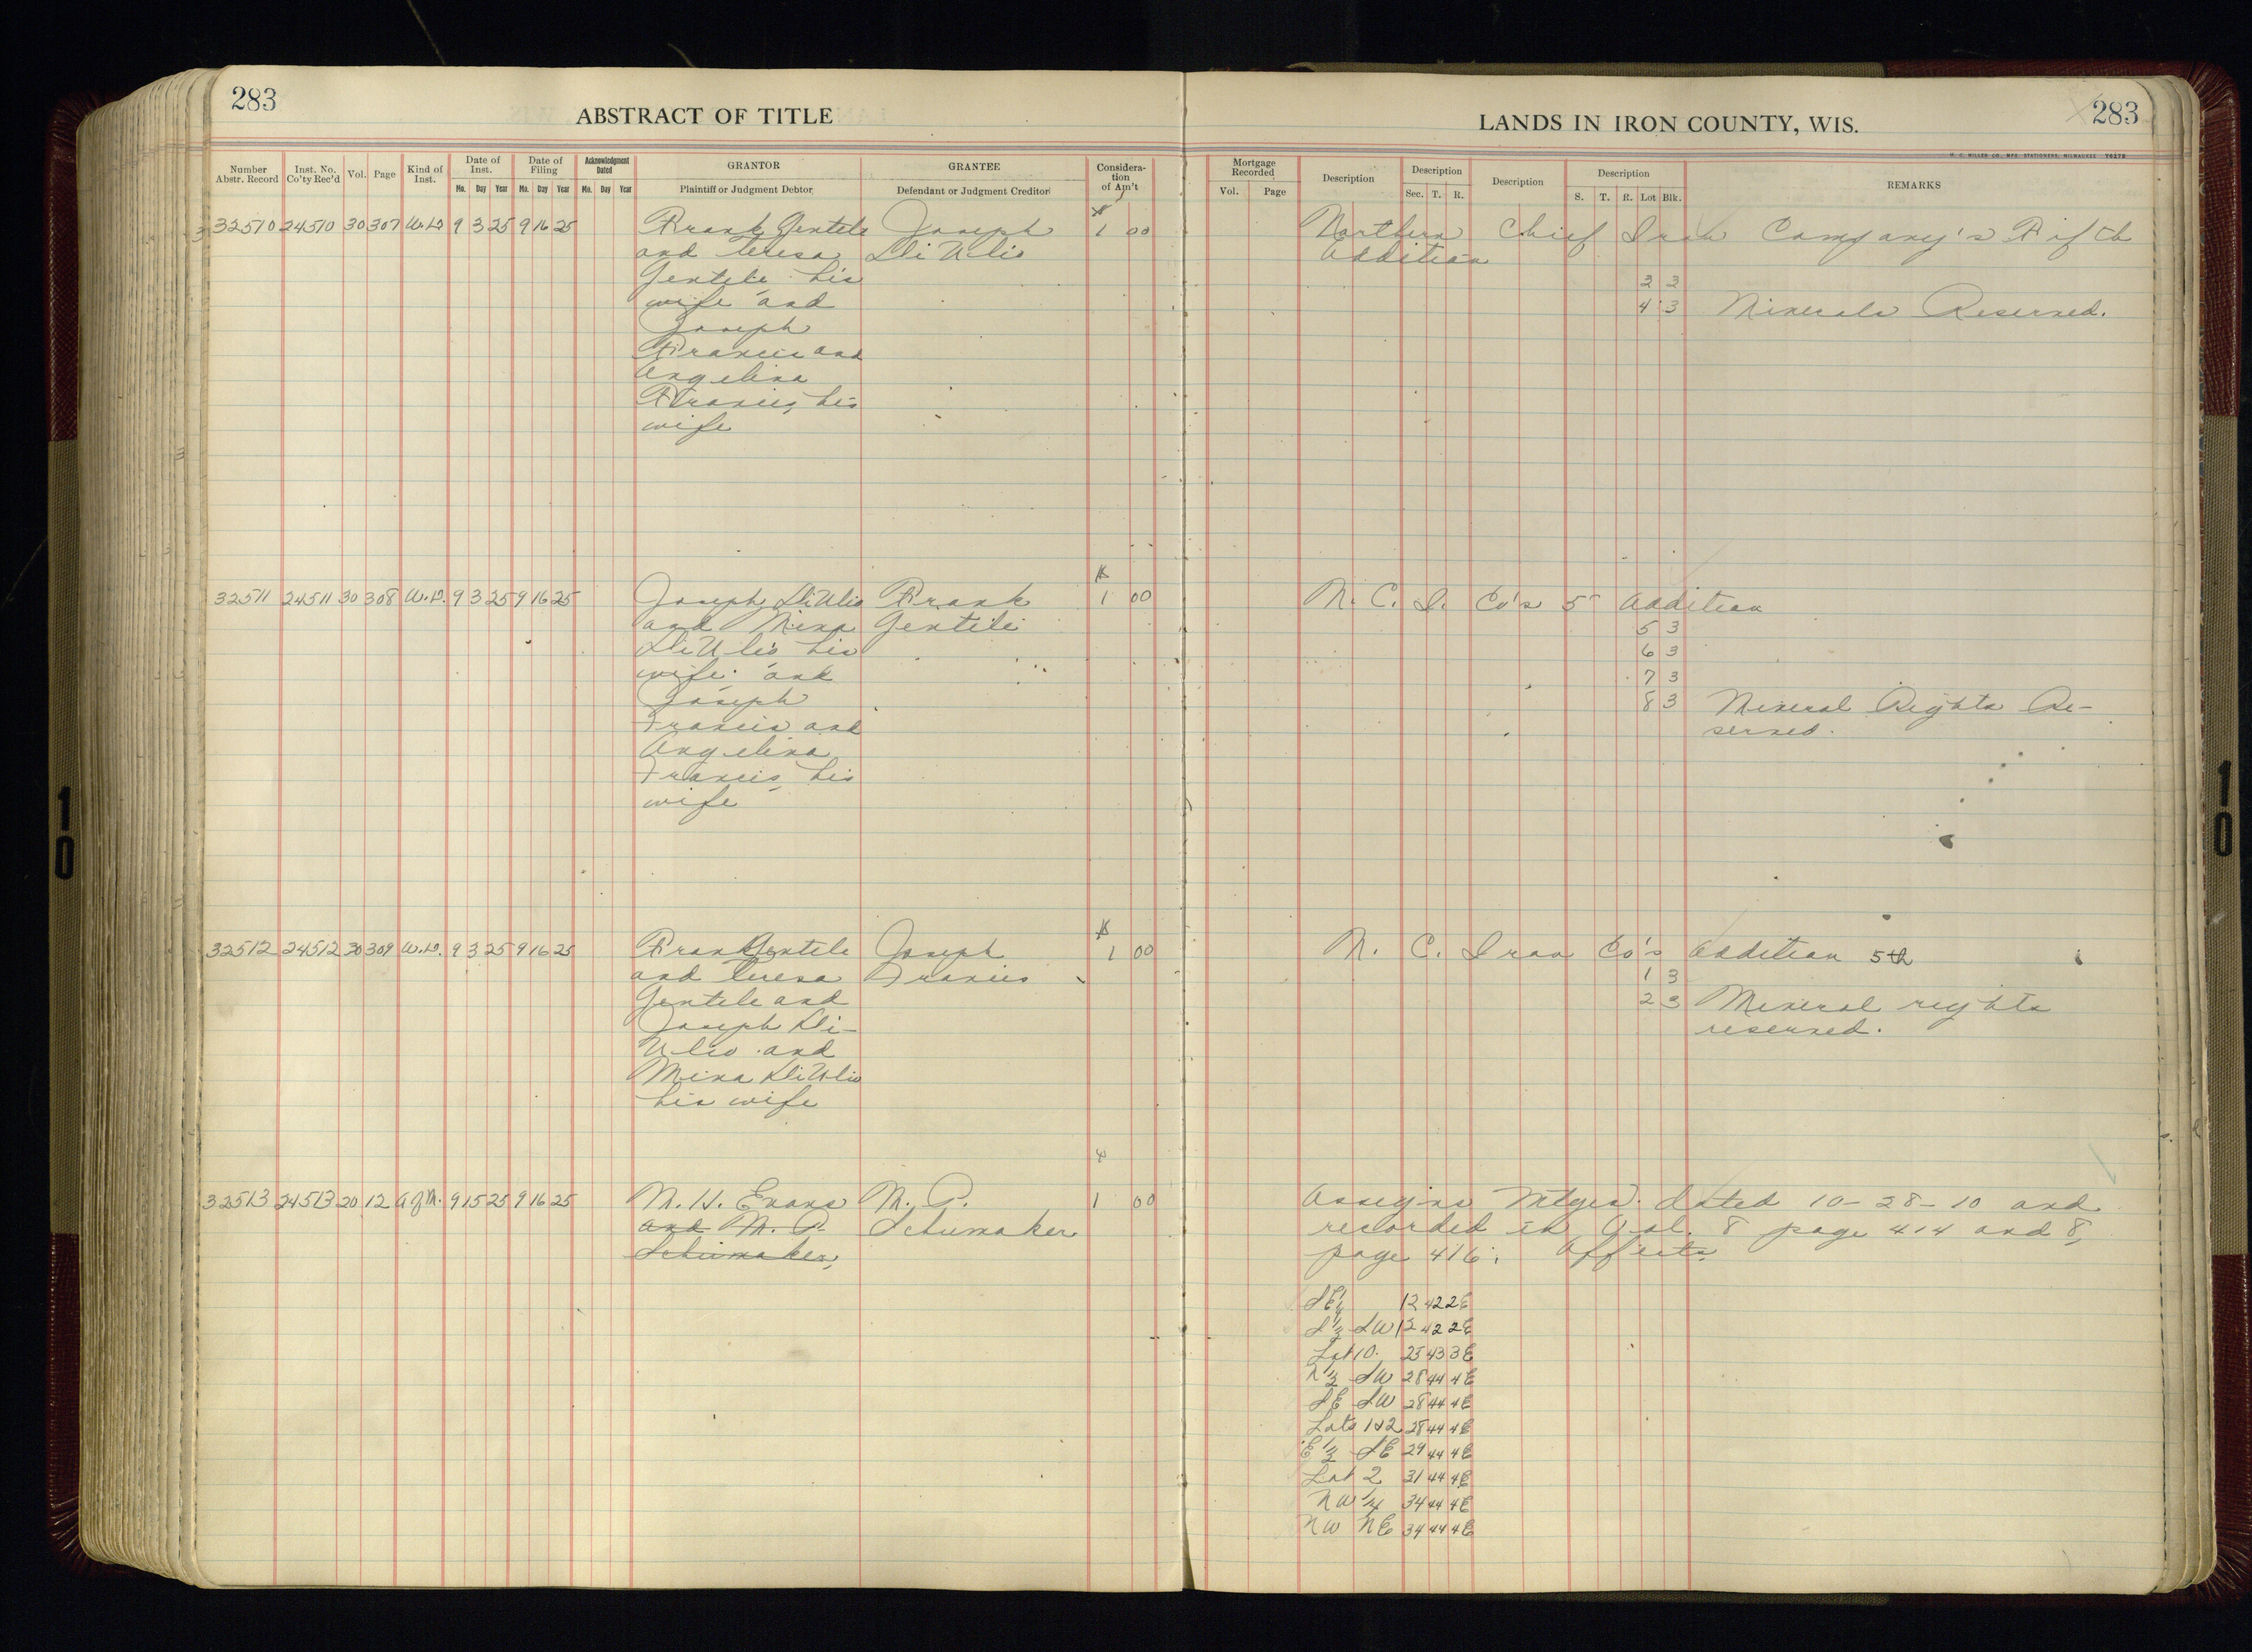 283
ABSTRACT OF TITLE
LANDS IN IRON COUNTY, WIS.
283
H. C. MILLER CO., MFG. STATIONERS, MILWAUKEE Y6279
Number Abstr. Record | Inst. No. Co'ty Rec'd | Vol. | Page | Kind of Inst. | Date of Inst. Mo. Day Year | Date of Filing Mo. Day Year | Acknowledgment Dated Mo. Day Year | GRANTOR Plaintiff or Judgment Debtor | GRANTEE Defendant or Judgment Creditor | Consideration of Am't | Mortgage Recorded Vol. Page | Description | Description Sec. T. R. | Description | Description S. T. R. Lot Blk. | REMARKS
32510 24510 30 307 W.D. 9 3 25 9 16 25 Frank Gentele Joseph $1 00 Northern Chief Iron Company's Fifth
and Teresa DiUlio Addition
Gentele his 3 3
wife and 4 3 Minerals Reserved.
Joseph
Francis and
Angelina
Francis, his
wife
32511 24511 30 308 W.D. 9 3 25 9 16 25 Joseph DiUlio Frank $1 00 N. C. I. Co's 5 Addition
and Mina Gentile 5 3
DiUlio his 6 3
wife and 7 3
Joseph 8 3 Mineral Rights Re-
Francis and served.
Angelina
Francis, his
wife
32512 24512 30 309 W.D. 9 3 25 9 16 25 Frank Gentele Joseph $1 00 N. C. Iron Co's Addition 5th
and Teresa Francis 1 3
Gentele and 2 3 Mineral rights
Joseph Di- reserved.
Ulio and
Mina DiUlio
his wife
32513 24513 20 12 9 15 25 9 16 25 M. H. Evans M. P. $1 00 Assigns Mtges. dated 10-28-10 and
and M. P. Schumaker recorded in Vol. 8 page 414 and 8,
Schumaker, page 416. Affects
SE1/4 12 42 2E
S1/2 SW 12 42 2E
Lot 10. 25 43 3E
N1/2 SW 28 44 4E
SE SW 28 44 4E
Lots 1&2 28 44 4E
E1/2 SE 29 44 4E
Lot 2 31 44 4E
NW1/4 34 44 4E
NW NE 34 44 4E
10
10